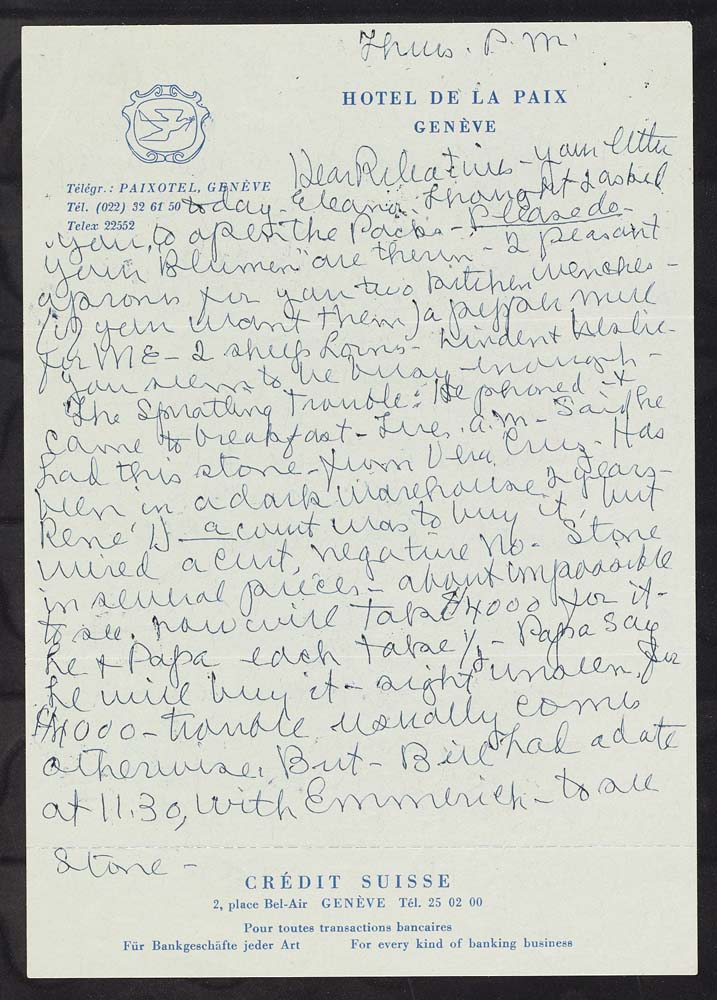 Thurs. P.M.
HOTEL DE LA PAIX
GENÈVE
Télégr.: PAIXOTEL, GENÈVE
Tél. (022) 32 61 50
Telex 22552
Dear Relatives - your letter
today. Thought I asked
you, to open the Packs - Please do -
your "Blumen" are therein - 2 peasant
aprons for you two kitchen wenches -
(if you want them) a pepper mill
for ME - 2 sheep - Linden & Leslie -
you seem to be busy enough -
The Spratling Trouble: He phoned +
came to breakfast - Tues. a.m. - Said he
had this stone - from Vera Cruz - Has
been in a dark warehouse 2 years -
René D a count was to buy it, but
wired a curt, negative No - Stone
in several pieces - about impossible
to see. now will take $4000 for it -
he + Papa each take ½ - Papa say
he will buy it - sight unseen, for
$4000 - trouble usually comes
otherwise. But - Bill had a date
at 11.30, with Emmerich - to see
stone -
CRÉDIT SUISSE
2, place Bel-Air GENÈVE Tél. 25 02 00
Pour toutes transactions bancaires
Für Bankgeschäfte jeder Art For every kind of banking business